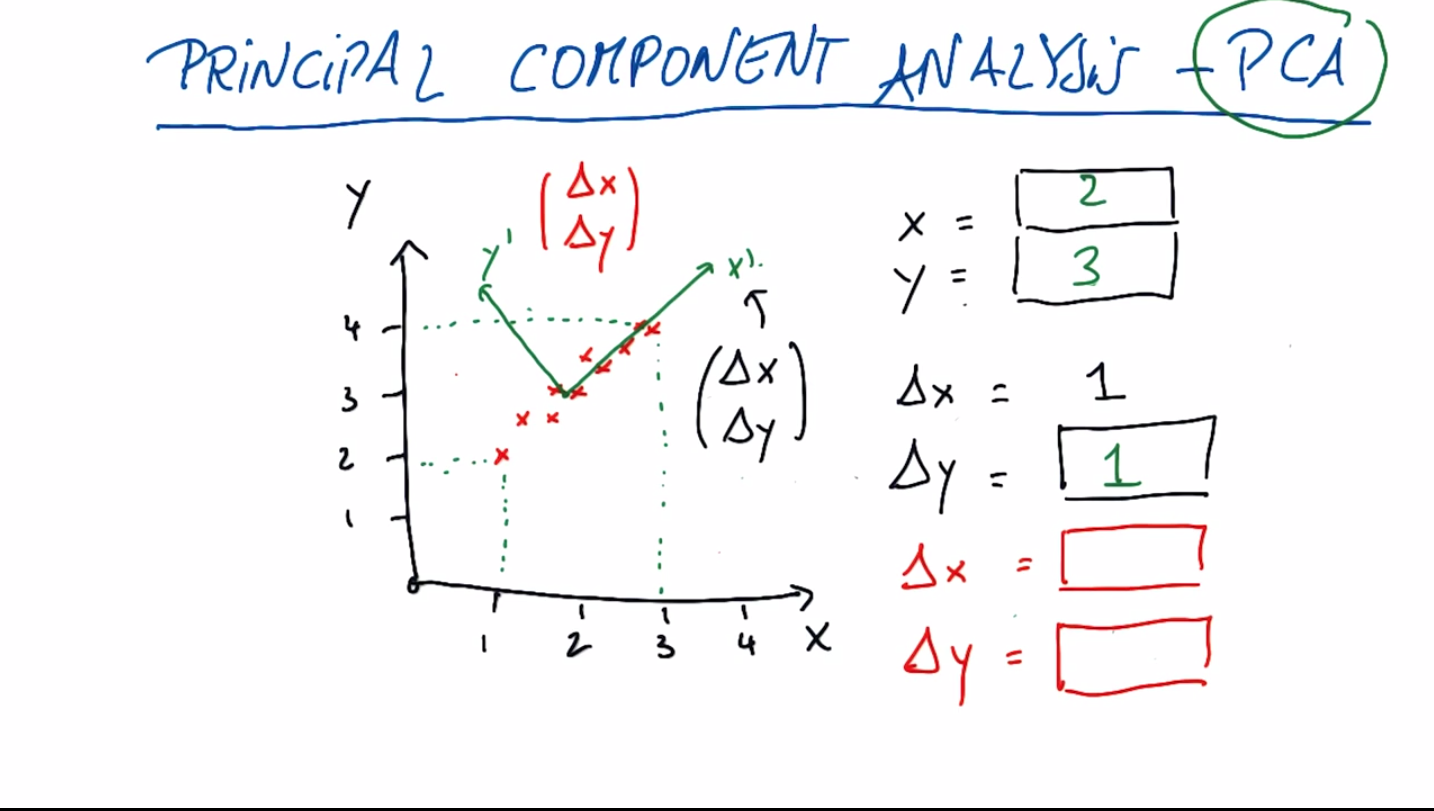 PRINCIPAL COMPONENT ANALYSIS - PCA
Y
(Δx
Δy)
y'
x').
4
3
2
1
(Δx
Δy)
1 2 3 4 X
x = 2
y = 3
Δx = 1
Δy = 1
Δx =
Δy =